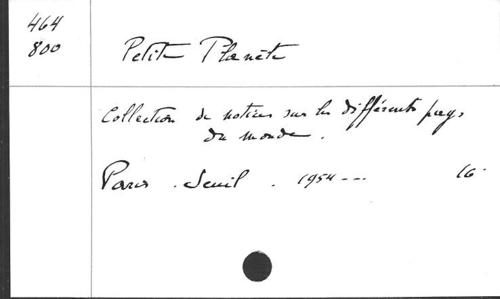 464
800
Petite Planète
Collection de notices sur les différents pays
du monde.
Paris . Seuil . 1954 --- 16